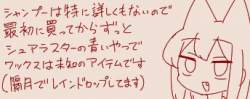 シャンプーは特に詳しくもないので
最初に買ってからずっと
シュアラスターの青いやつで
ワックスは未知のアイテムです
(隔月でレインドロップしてます)